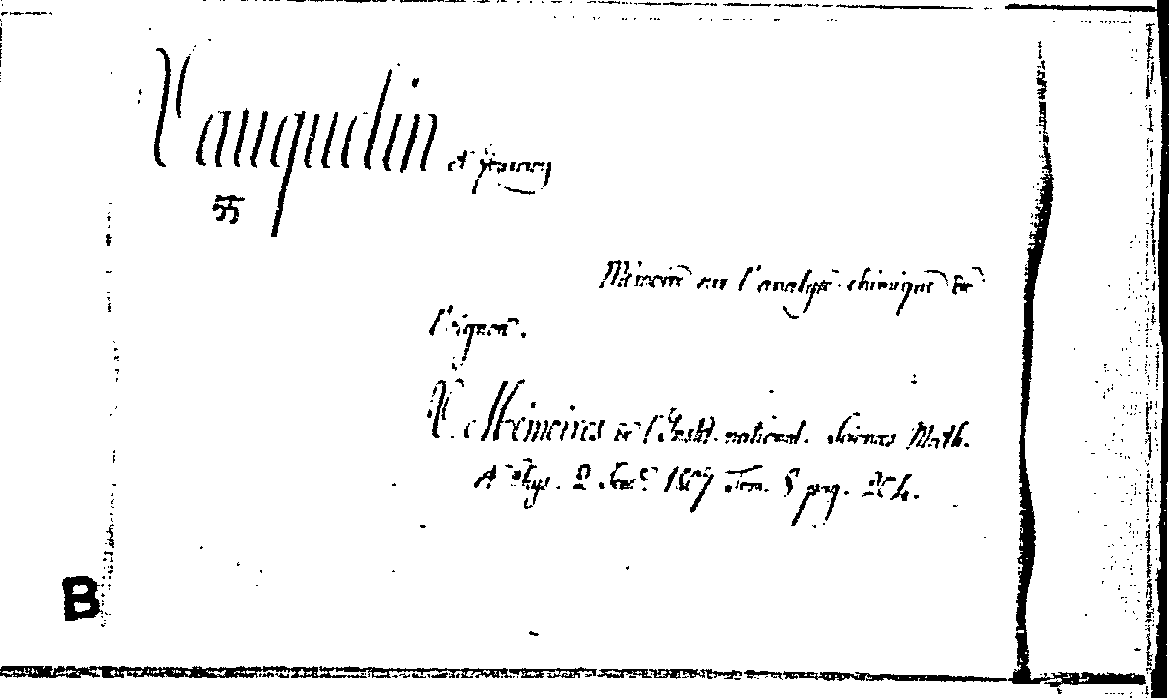 Vauquelin et Fourcroy
55
Mémoire sur l'analyse chimique de
l'oignon.
V. Mémoires de l'Instit. national. Sciences Math.
et Phys. 2 Sem. 1807 Tom. 8 pag. 204.
B